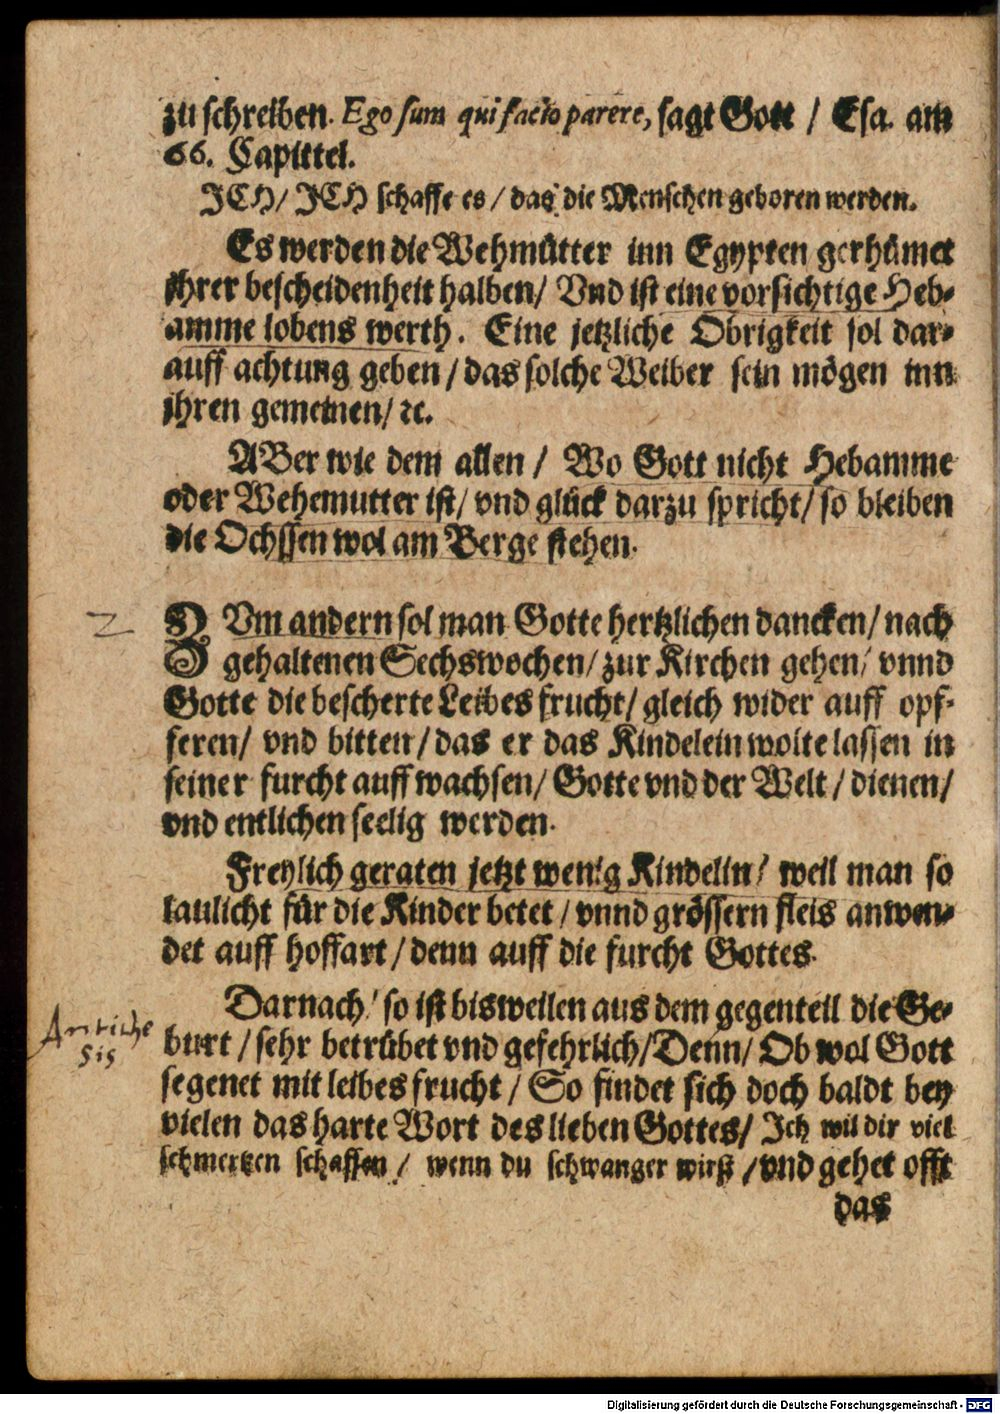 zu schreiben. Ego sum qui facio parere, sagt Gott / Esa. am
66. Capittel.
JCH / JCH schaffe es / das die Menschen geboren werden.
Es werden die Wehmütter inn Egypten gerhümet
jhrer bescheidenheit halben / Vnd ist eine vorsichtige Heb-
amme lobens werth. Eine jetzliche Obrigkeit sol dar-
auff achtung geben / das solche Weiber sein mögen inn
jhren gemeinen / ꝛc.
ABer wie dem allen / Wo Gott nicht Hebamme
oder Wehemutter ist / vnd glück darzu spricht / so bleiben
die Ochssen wol am Berge stehen.
2
ZVm andern sol man Gotte hertzlichen dancken / nach
gehaltenen Sechswochen / zur Kirchen gehen / vnnd
Gotte die bescherte Leibes frucht / gleich wider auff opf-
feren / vnd bitten / das er das Kindelein wolte lassen in
seiner furcht auff wachsen / Gotte vnd der Welt / dienen /
vnd entlichen seelig werden.
Freylich geraten jetzt wenig Kindelin / weil man so
laulicht für die Kinder betet / vnnd grössern fleis anwen-
det auff hoffart / denn auff die furcht Gottes.
Antithe
sis
Darnach / so ist bisweilen aus dem gegenteil die Ge-
burt / sehr betrübet vnd gefehrlich / Denn / Ob wol Gott
segenet mit leibes frucht / So findet sich doch baldt bey
vielen das harte Wort des lieben Gottes / Ich wil dir viel
schmertzen schaffen / wenn du schwanger wirst / vnd gehet offt
das
Digitalisierung gefördert durch die Deutsche Forschungsgemeinschaft - DFG